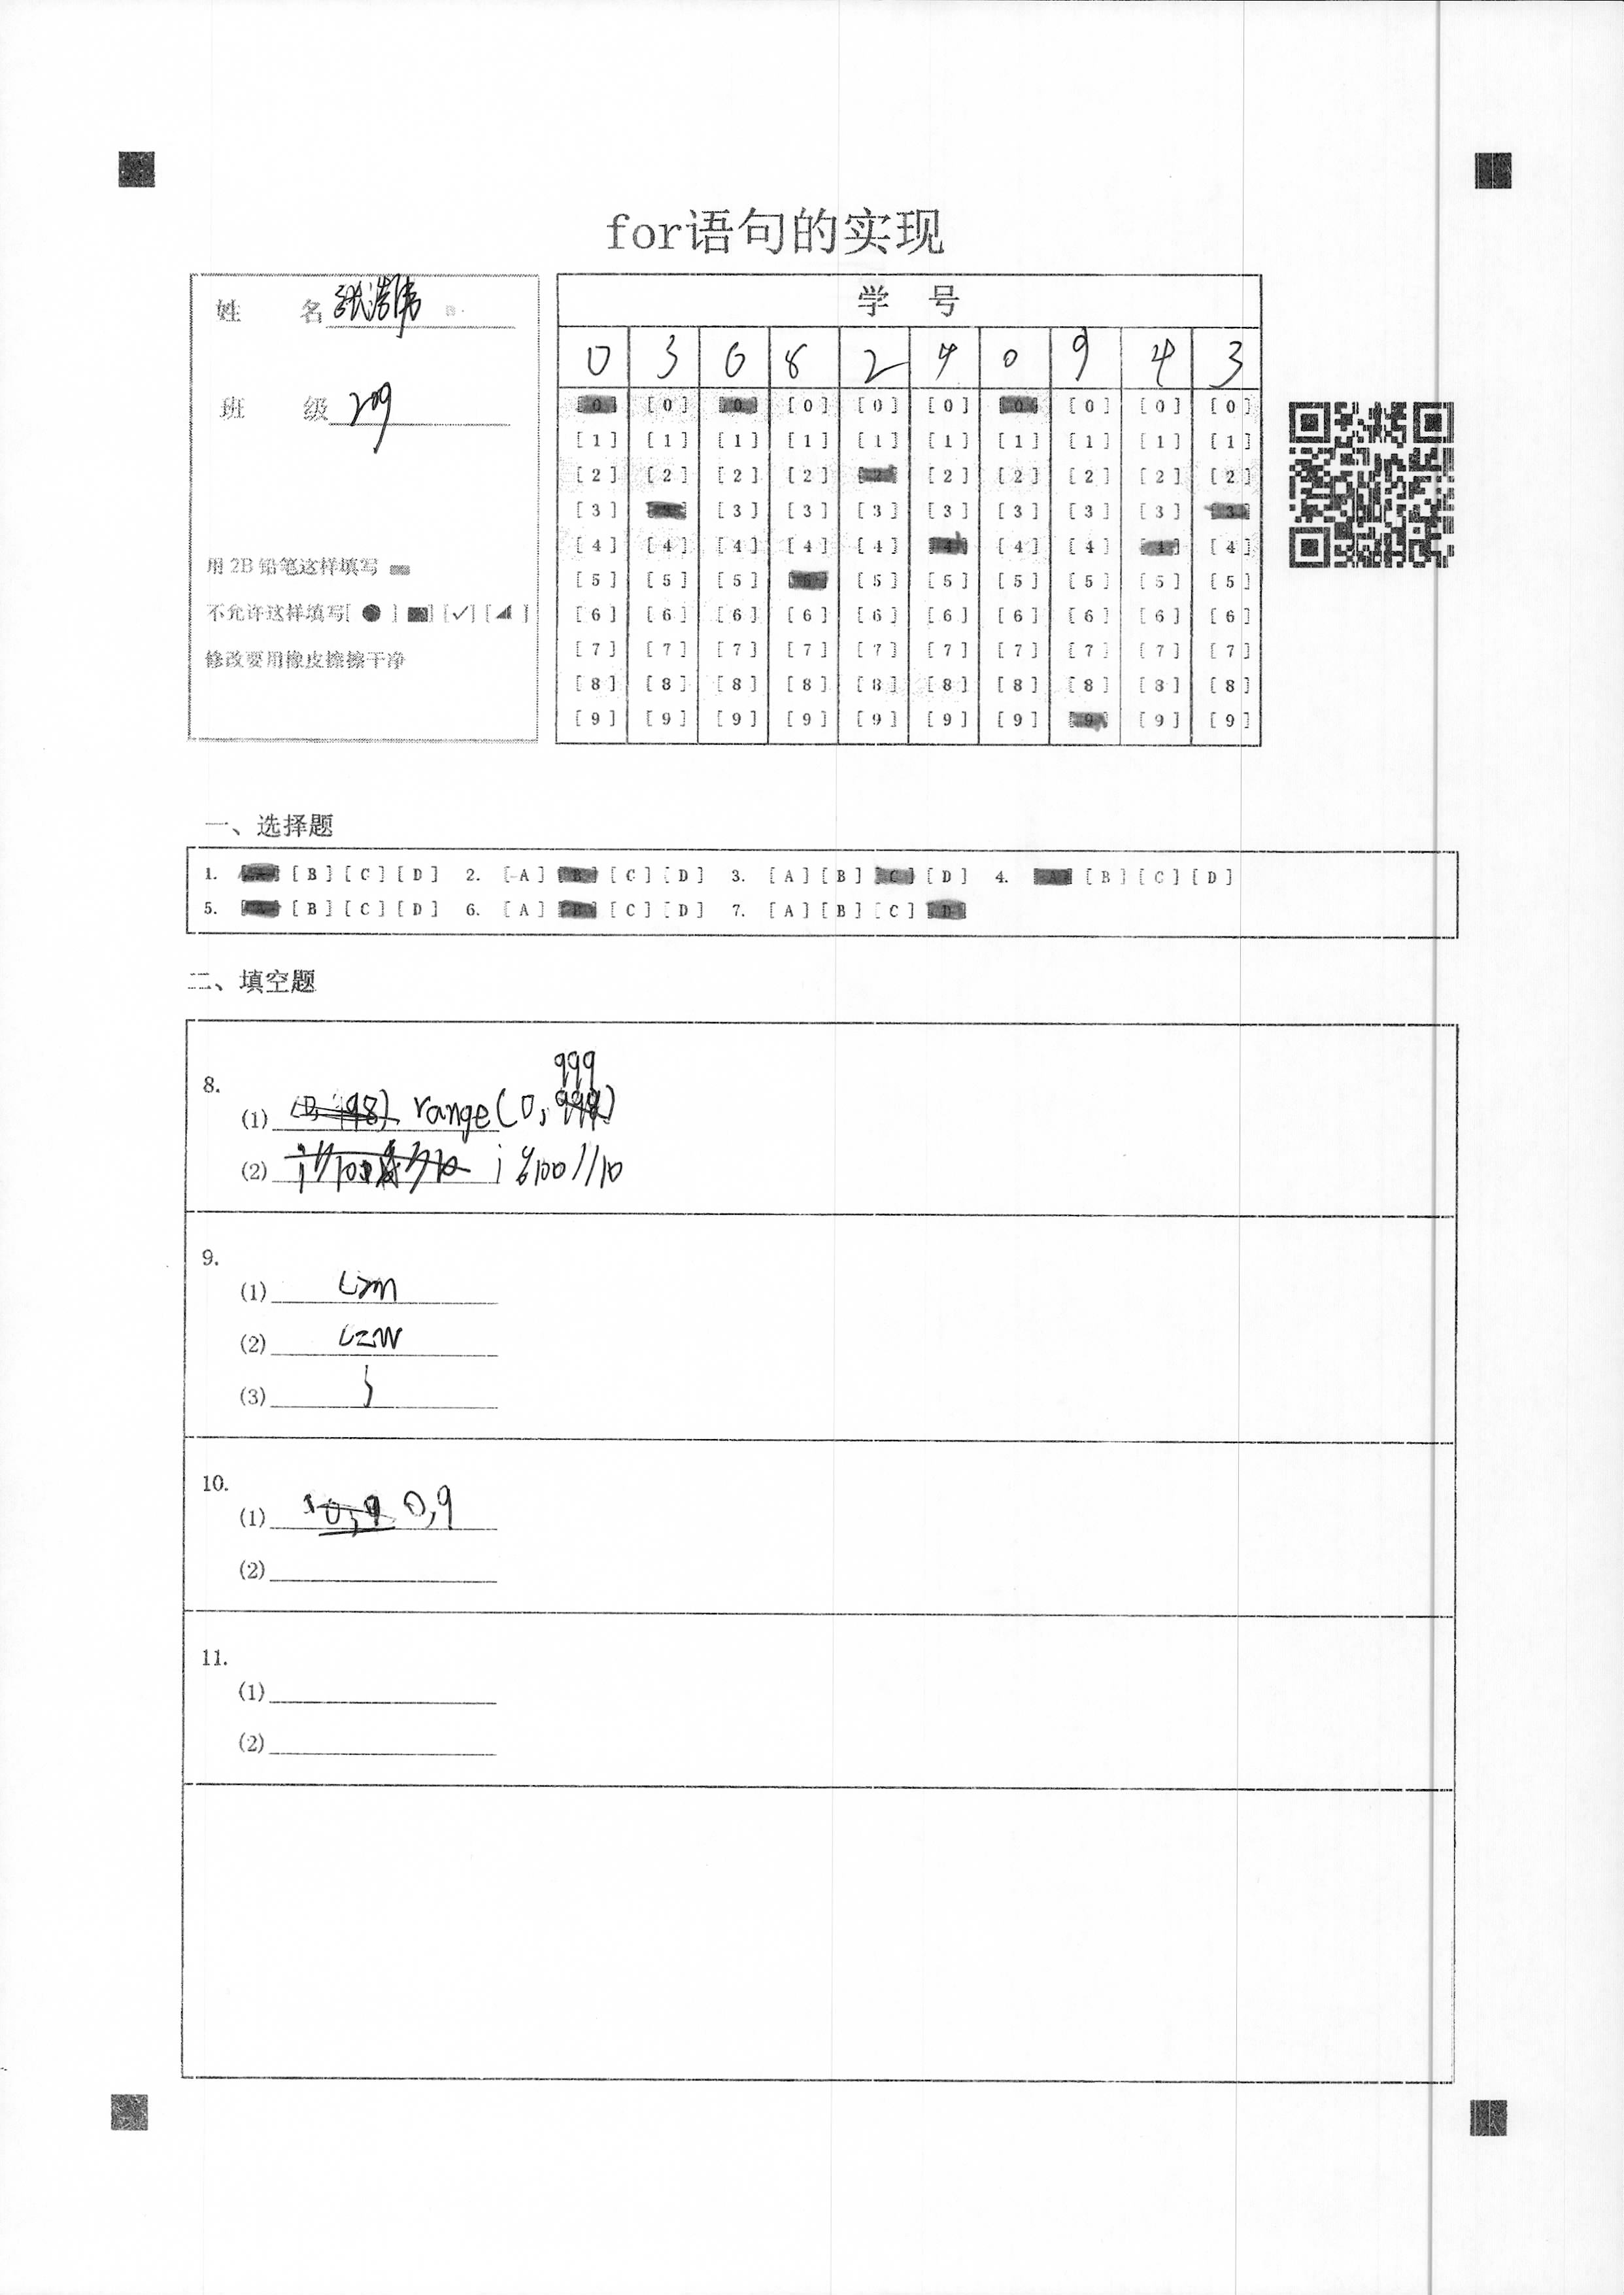 for语句的实现
姓 名 张浩伟
班 级 209
用 2B 铅笔这样填写
不允许这样填写[ ● ] [■] [✓] [◢ ]
修改要用橡皮擦擦干净
学 号
0 3 0 8 2 4 0 9 4 3
[0] [0] [0] [0] [0] [0] [0] [0] [0] [0]
[1] [1] [1] [1] [1] [1] [1] [1] [1] [1]
[2] [2] [2] [2] [2] [2] [2] [2] [2] [2]
[3] [3] [3] [3] [3] [3] [3] [3] [3] [3]
[4] [4] [4] [4] [4] [4] [4] [4] [4] [4]
[5] [5] [5] [5] [5] [5] [5] [5] [5] [5]
[6] [6] [6] [6] [6] [6] [6] [6] [6] [6]
[7] [7] [7] [7] [7] [7] [7] [7] [7] [7]
[8] [8] [8] [8] [8] [8] [8] [8] [8] [8]
[9] [9] [9] [9] [9] [9] [9] [9] [9] [9]
一、选择题
1. [A] [B] [C] [D] 2. [A] [B] [C] [D] 3. [A] [B] [C] [D] 4. [A] [B] [C] [D]
5. [A] [B] [C] [D] 6. [A] [B] [C] [D] 7. [A] [B] [C] [D]
二、填空题
8.
(1) range(0,999)
(2) i%100//10
9.
(1) i>m
(2) i=m
(3)
10.
(1) 0,9
(2)
11.
(1)
(2)